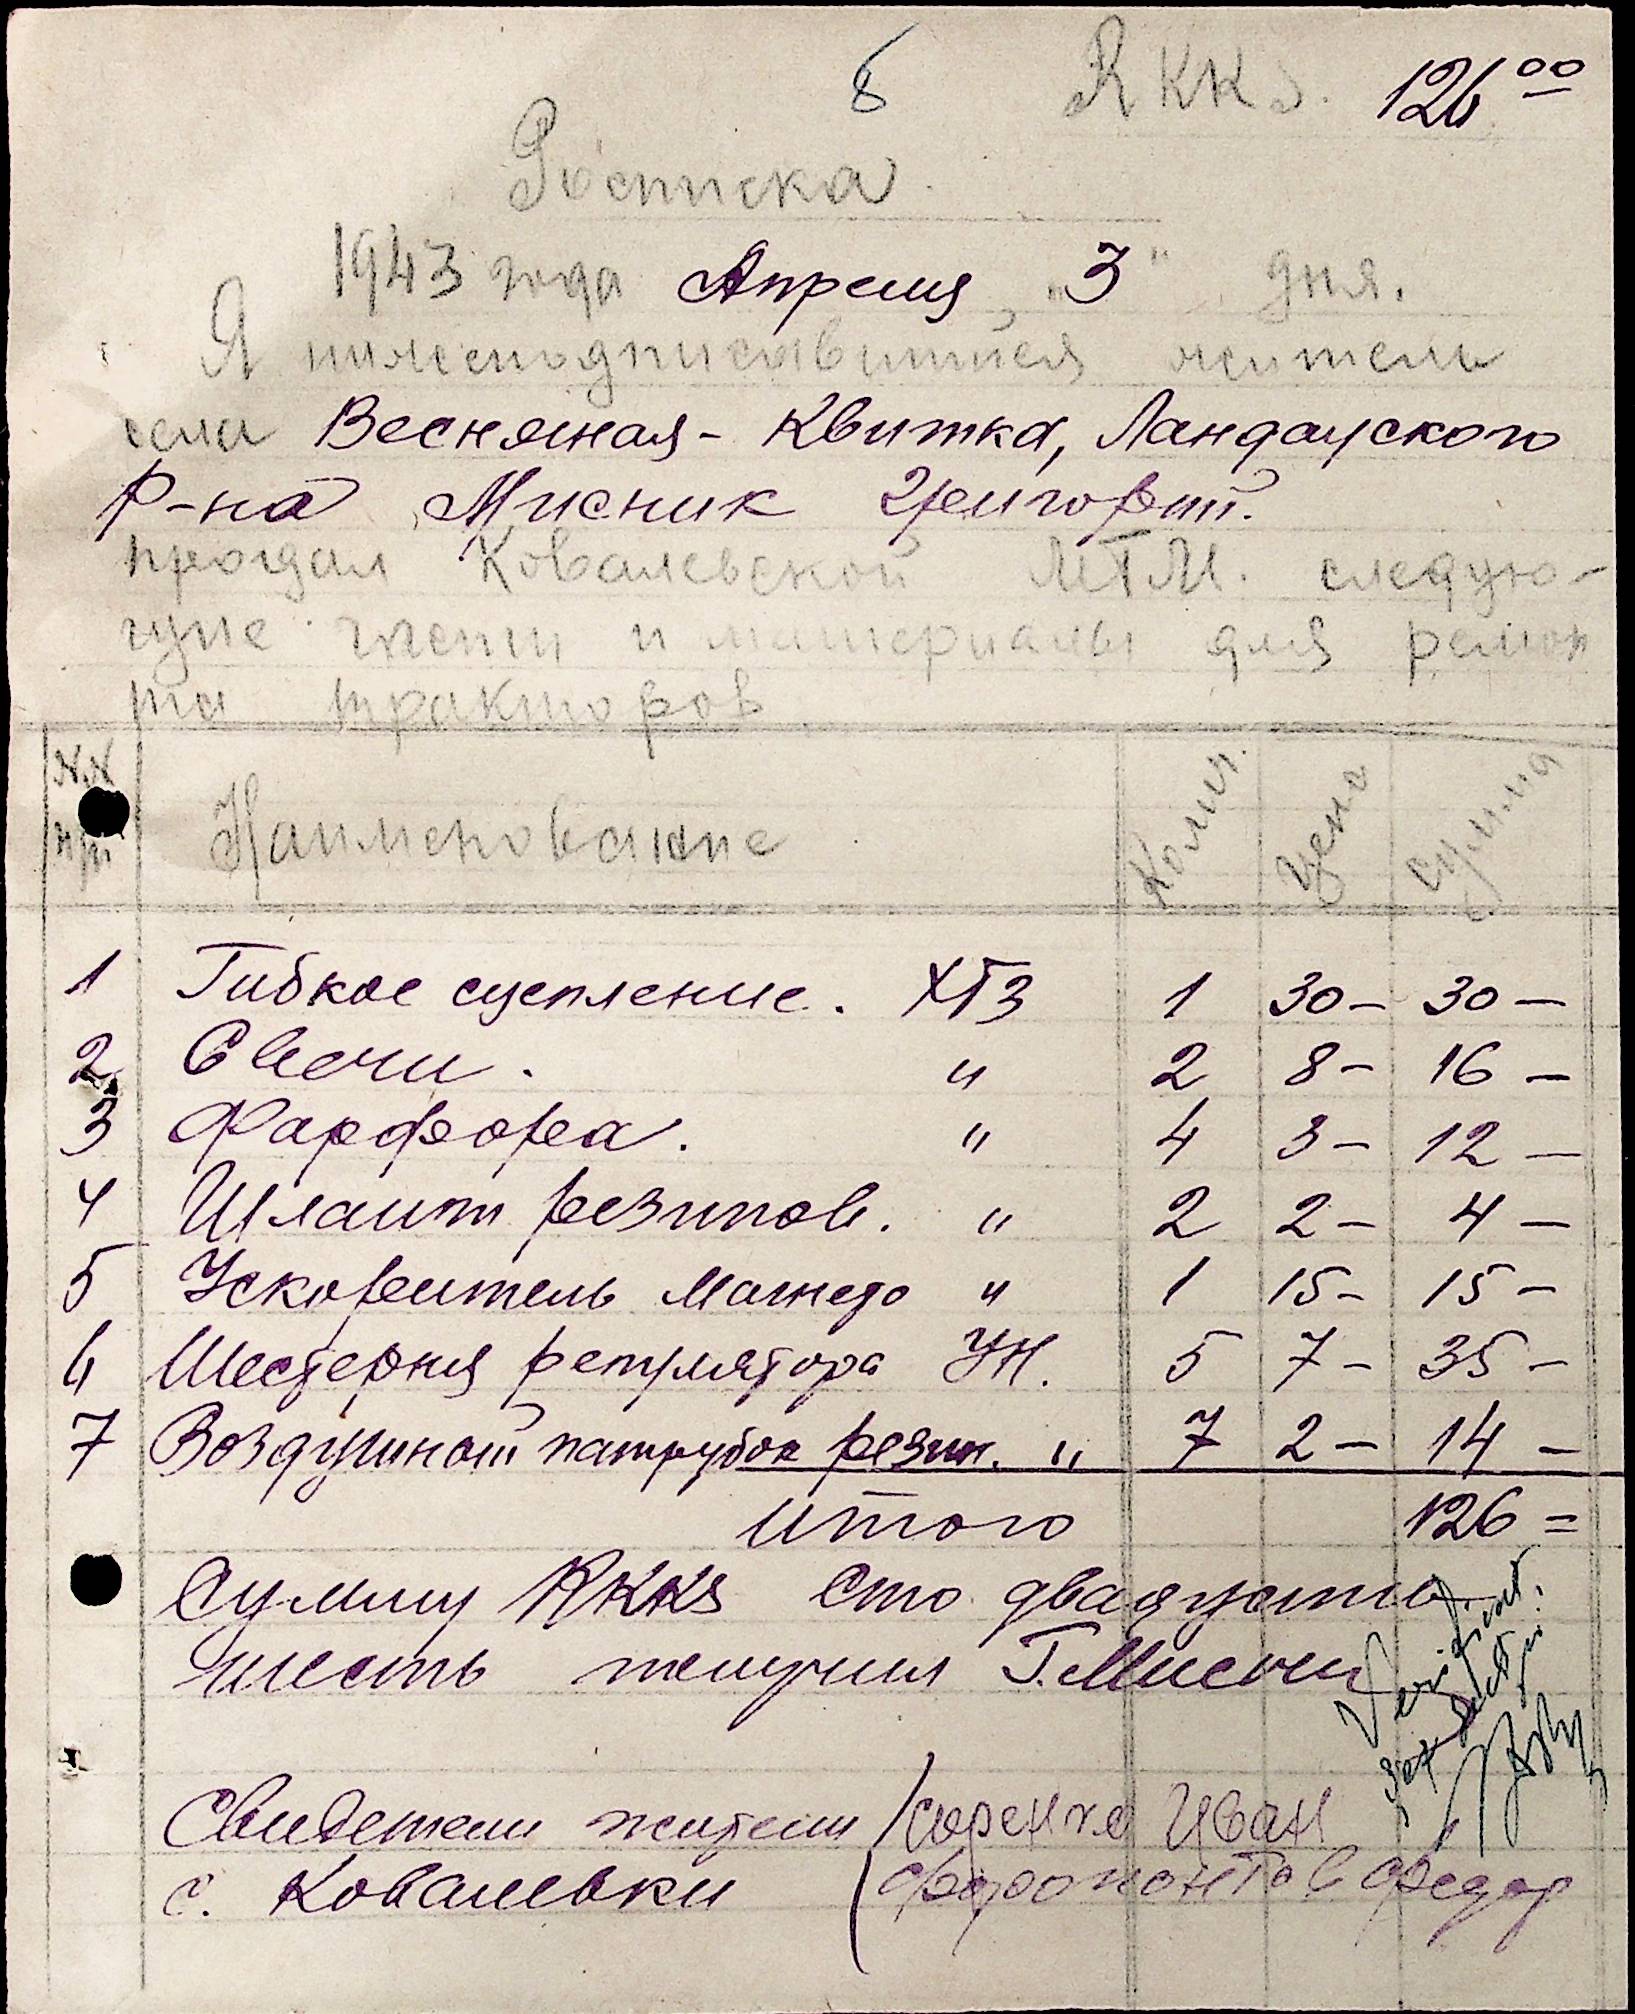 8 RKKS. 126 00
Росписка.
1943 года Апреля "3" дня.
Я нижеподписавшийся житель
села Весняная-Квитка, Ландауского
Р-на Мисник Григорий.
продал Ковалевской МТМ. следую-
щие части и материалы для ремон
та тракторов
N.N п/п Наименование Колич. Цена Сумма
1 Гибкое сцепление. ХТЗ 1 30- 30-
2 Свечи. " 2 8- 16-
3 Фарфора. " 4 3- 12-
4 Шланг резинов. " 2 2- 4-
5 Ускоритель Магнето " 1 15- 15-
6 Шестерня регулятора УН. 5 7- 35-
7 Воздушной патрубок резин. " 7 2- 14-
Итого 126=
Сумму RKKS сто двадцать
шесть получил Г. Мисник
Verificat.
Свидетели жители Иван
с. Ковалевки Федор